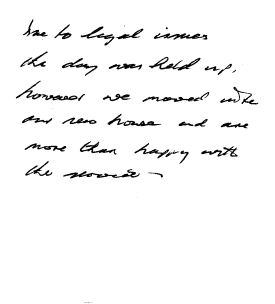 Due to legal issues
the day was held up,
however we moved into
our new house and are
more than happy with
the service